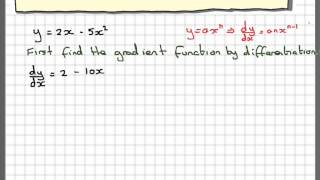 y = 2x - 5x² y = axⁿ ⇒ dy/dx = anxⁿ⁻¹
First find the gradient function by differentiation
dy/dx = 2 - 10x